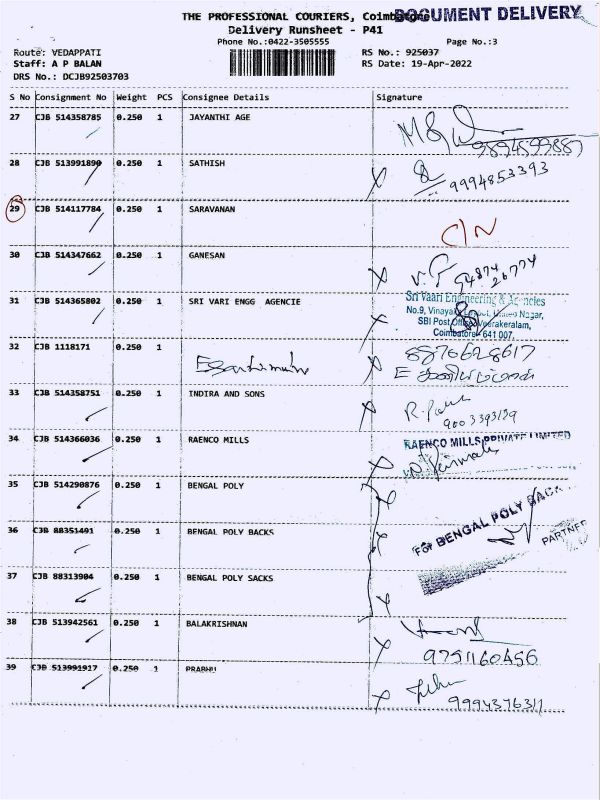 DOCUMENT DELIVERY
THE PROFESSIONAL COURIERS, Coimbatore
Delivery Runsheet - P41
Phone No.:0422-3505555 Page No.:3
Route: VEDAPPATI RS No.: 925037
Staff: A P BALAN RS Date: 19-Apr-2022
DRS No.: DCJB92503703
S No Consignment No Weight PCS Consignee Details Signature
27 CJB 514358785 0.250 1 JAYANTHI AGE
9894599887
28 CJB 513991890 0.250 1 SATHISH
9994853393
29 CJB 514117784 0.250 1 SARAVANAN
C/N
30 CJB 514347662 0.250 1 GANESAN
94874 26774
31 CJB 514365802 0.250 1 SRI VARI ENGG AGENCIE
Sri Vaari Engineering & Agencies
No.9, Vinayaga Nagar,
SBI Post Office Veerakeralam,
Coimbatore - 641 007.
32 CJB 1118171 0.250 1
8876628617
33 CJB 514358751 0.250 1 INDIRA AND SONS
9003393139
34 CJB 514366036 0.250 1 RAENCO MILLS
RAENCO MILLS PRIVATE LIMITED
35 CJB 514290876 0.250 1 BENGAL POLY
36 CJB 88351491 0.250 1 BENGAL POLY BACKS
For BENGAL POLY BACK
PARTNER
37 CJB 88313904 0.250 1 BENGAL POLY SACKS
38 CJB 513942561 0.250 1 BALAKRISHNAN
9751160456
39 CJB 513991917 0.250 1 PRABHU
9994376311